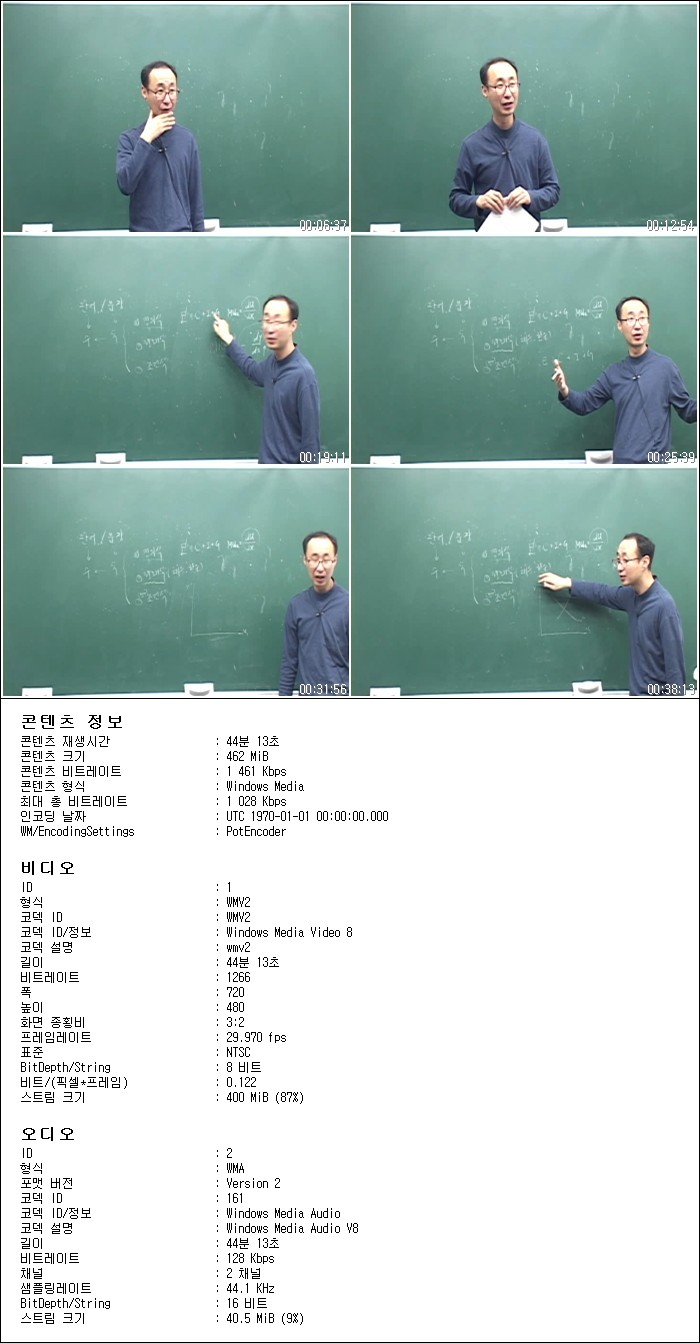 00:06:37
00:12:54
00:19:11
00:25:39
00:31:56
00:38:13
콘텐츠 정보
콘텐츠 재생시간 : 44분 13초
콘텐츠 크기 : 462 MiB
콘텐츠 비트레이트 : 1 461 Kbps
콘텐츠 형식 : Windows Media
최대 총 비트레이트 : 1 028 Kbps
인코딩 날짜 : UTC 1970-01-01 00:00:00.000
WM/EncodingSettings : PotEncoder
비디오
ID : 1
형식 : WMV2
코덱 ID : WMV2
코덱 ID/정보 : Windows Media Video 8
코덱 설명 : wmv2
길이 : 44분 13초
비트레이트 : 1266
폭 : 720
높이 : 480
화면 종횡비 : 3:2
프레임레이트 : 29.970 fps
표준 : NTSC
BitDepth/String : 8 비트
비트/(픽셀*프레임) : 0.122
스트림 크기 : 400 MiB (87%)
오디오
ID : 2
형식 : WMA
포맷 버전 : Version 2
코덱 ID : 161
코덱 ID/정보 : Windows Media Audio
코덱 설명 : Windows Media Audio V8
길이 : 44분 13초
비트레이트 : 128 Kbps
채널 : 2 채널
샘플링레이트 : 44.1 KHz
BitDepth/String : 16 비트
스트림 크기 : 40.5 MiB (9%)